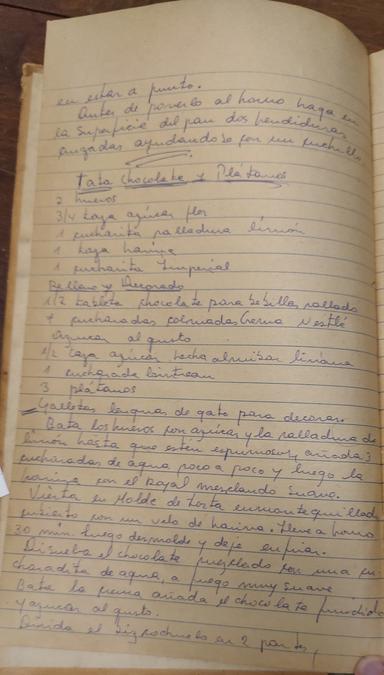 en estar a punto.
Antes de ponerlo al horno haga en
la superficie del pan dos hendiduras
cruzadas ayudandose con un cuchillo
Tata Chocolate y Plátanos
2 huevos
3/4 taza azúcar flor
1 cucharita ralladura limón
1 taza harina
1 cucharita Imperial
Relleno y Decorado
1/2 tableta chocolate para bebillas rallado
7 cucharadas colmadas Crema Nestlé
azucar al gusto
1/2 taza azúcar hecha almibar liviana
1 cucharada
3 plátanos
Galletas lenguas de gato para decorar.
Bata los huevos con azúcar y la ralladura de
limón hasta que estén espumosos, añada 3
cucharadas de agua poco a poco y luego la
harina con el Royal mezclando suave.
Vierta en Molde de torta enmantequillado
cubierto con un velo de harina. lleve a horno
30 min. luego desmolde y deje enfriar.
Disuelva el chocolate mezclado con una cu-
charadita de agua, a fuego muy suave
Bata la crema añada el chocolate fundido
y azucar al gusto.
Divida el bizcochuelo en 2 partes,